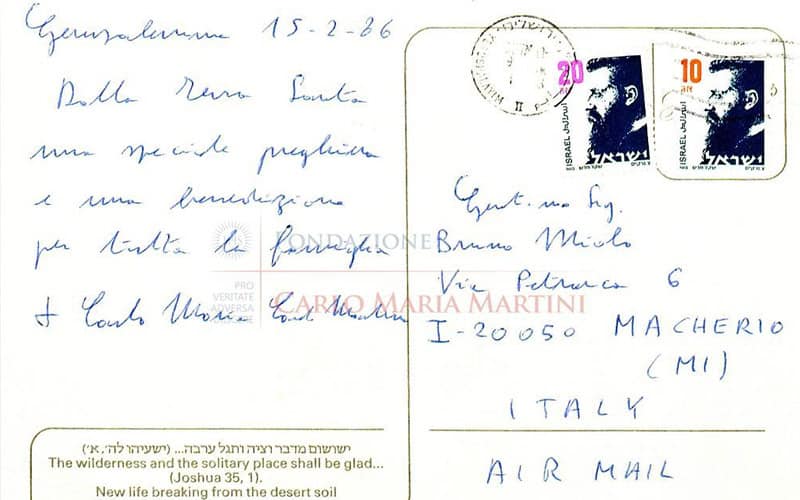 Gerusalemme 15-2-86
Dalla Terra Santa
una speciale preghiera
e una benedizione
per tutta la famiglia
+ Carlo Maria Card Martini
ישושום מדבר וציה ותגל ערבה... (ישעיהו לה׳, א׳)
The wilderness and the solitary place shall be glad...
(Joshua 35, 1).
New life breaking from the desert soil
20
ISRAEL
ישראל
10
ISRAEL
ישראל
Gent.mo Sig.
Bruno Miolo
Via Petrarca 6
I-20050 MACHERIO
(MI)
ITALY
AIR MAIL
FONDAZIONE
CARLO MARIA MARTINI
PRO
VERITATE
ADVERSA